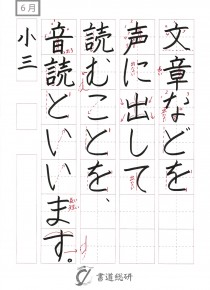 6月
文章などを
声に出して
読むことを、
音読といいます。
小三
書道総研